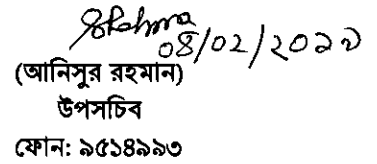 ০৪/০২/২০১৯
(আনিসুর রহমান)
উপসচিব
ফোন: ৯৫১৪৯৯৩